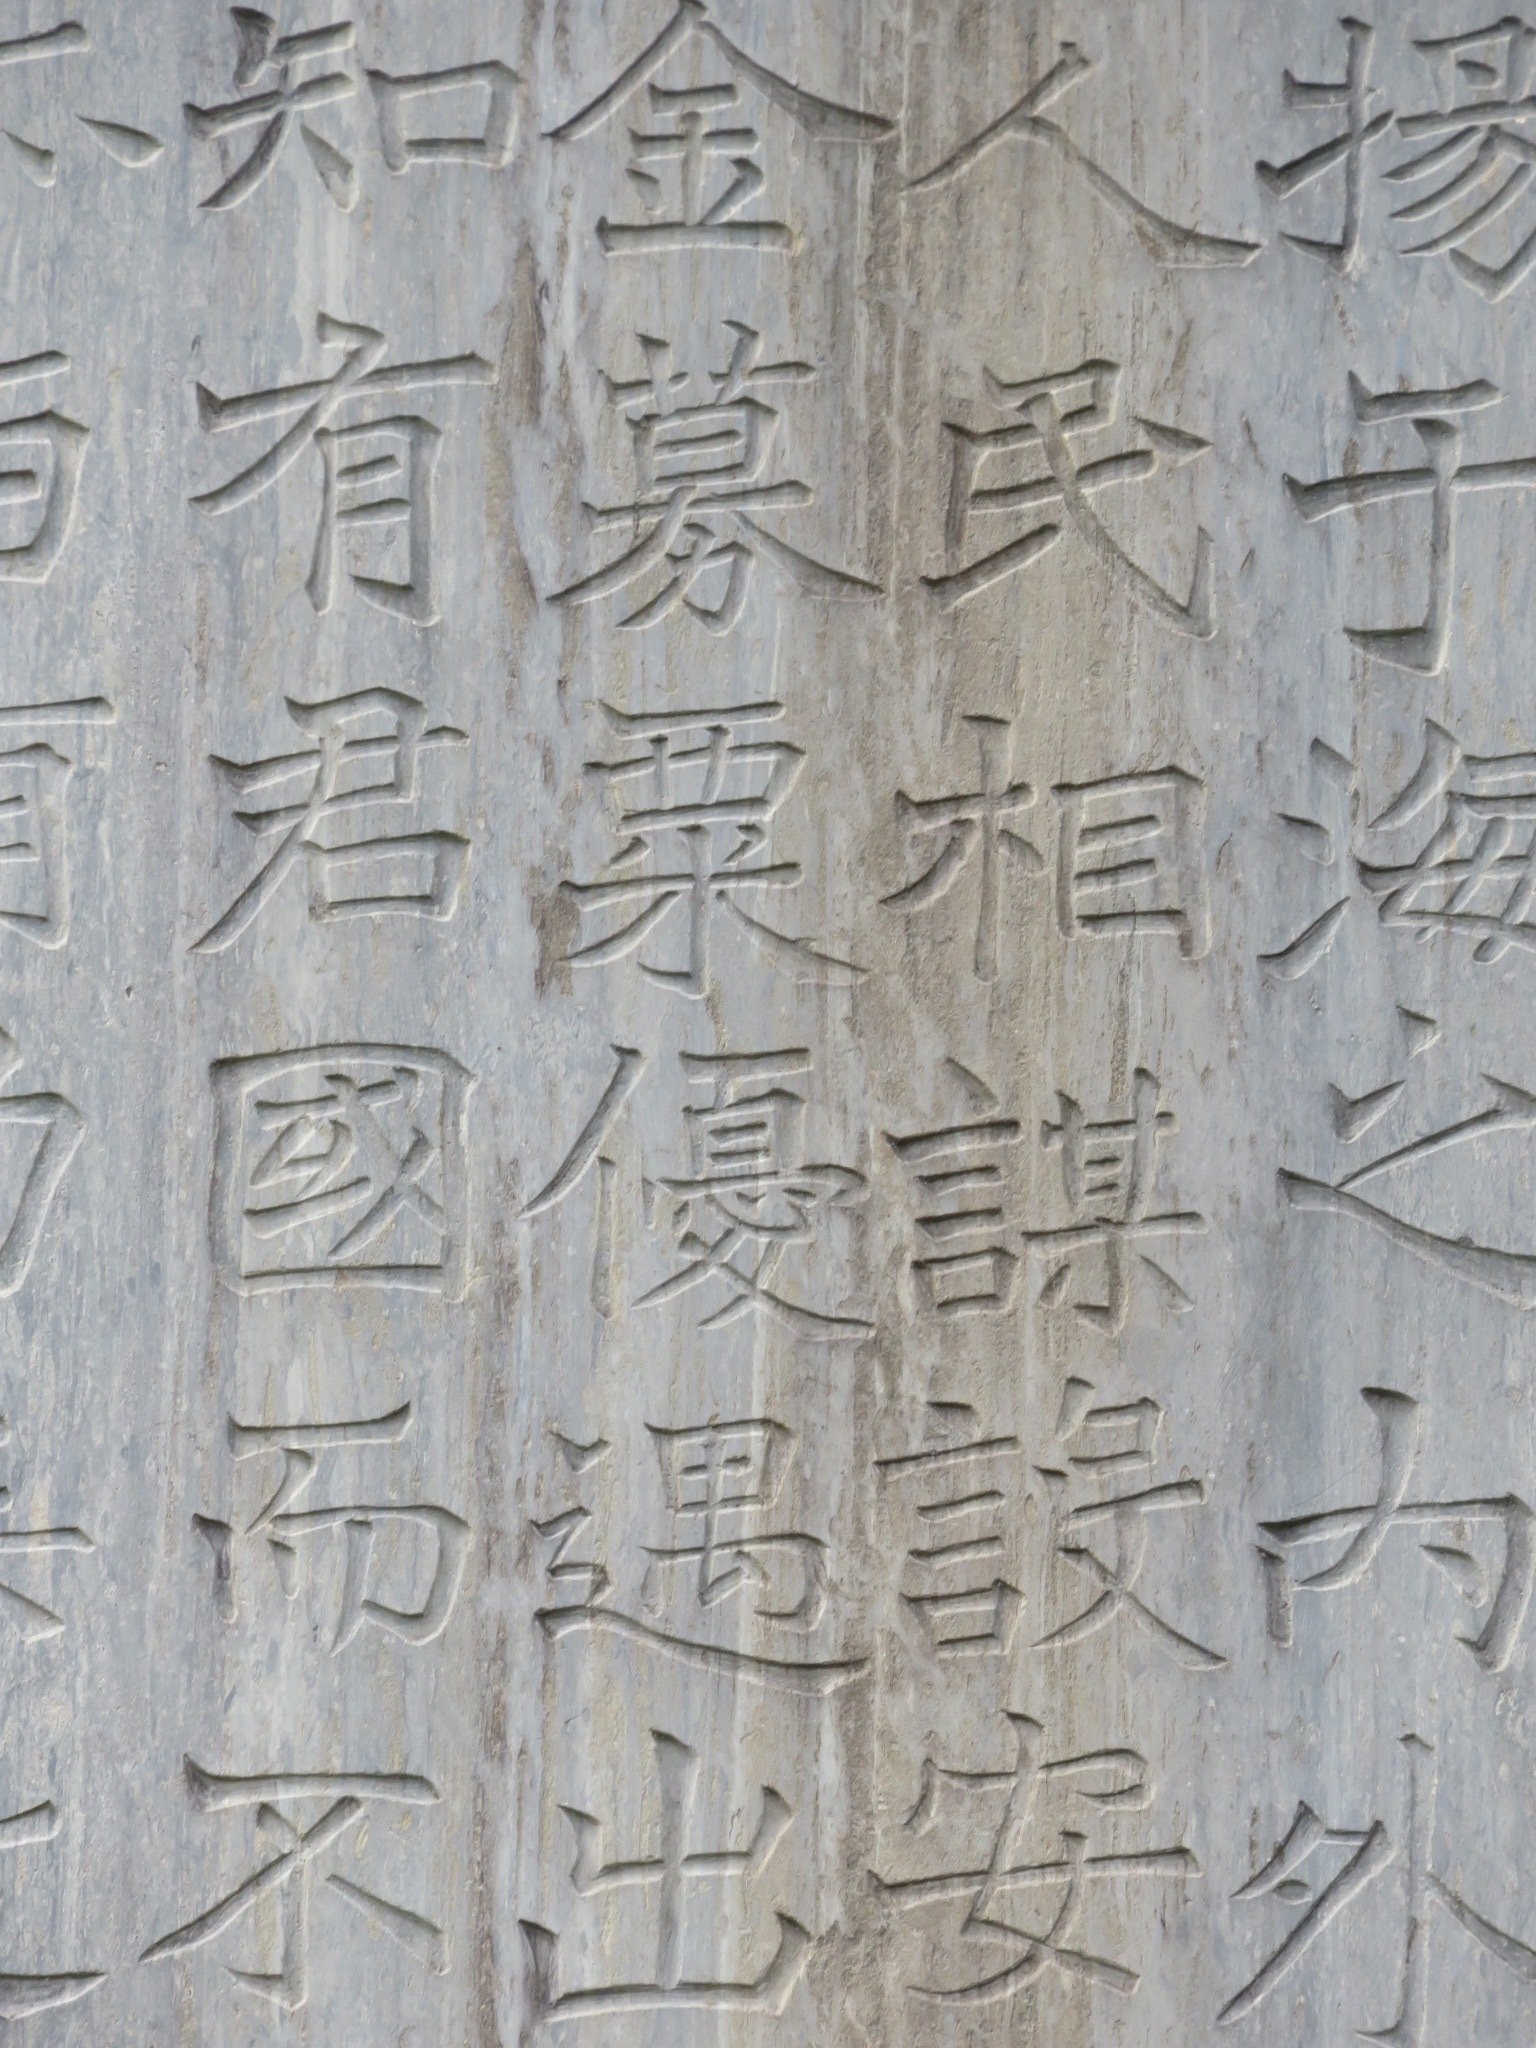 揚于海之內外
人民相謀設安
金募粟優遇出
知有君國而不